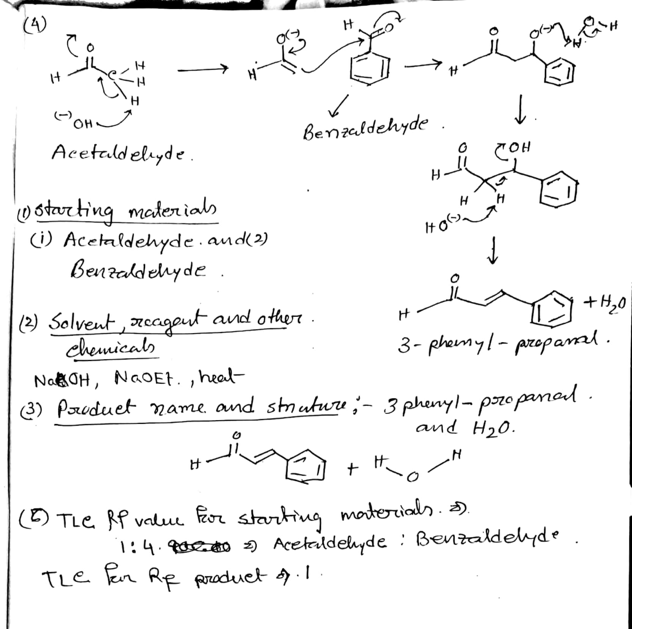 (4)
O O(-) H O O O(-) H O H
H C H H H H
H
(-)OH
Acetaldehyde. Benzaldehyde.
O OH
H
H H
HO(-)
(1) Starting materials
(i) Acetaldehyde. and (2)
Benzaldehyde.
O
H + H2O
3-phenyl-propanal.
(2) Solvent, reagent and other.
chemicals
NaOH, NaOEt., heat
(3) Product name and struture ;- 3 phenyl-propanal.
and H2O.
O
H + H O H
(5) TLC Rf value for starting materials. ⇒.
1:4. ⇒ Acetaldehyde : Benzaldehyde.
TLC for Rf product ⇒ .1